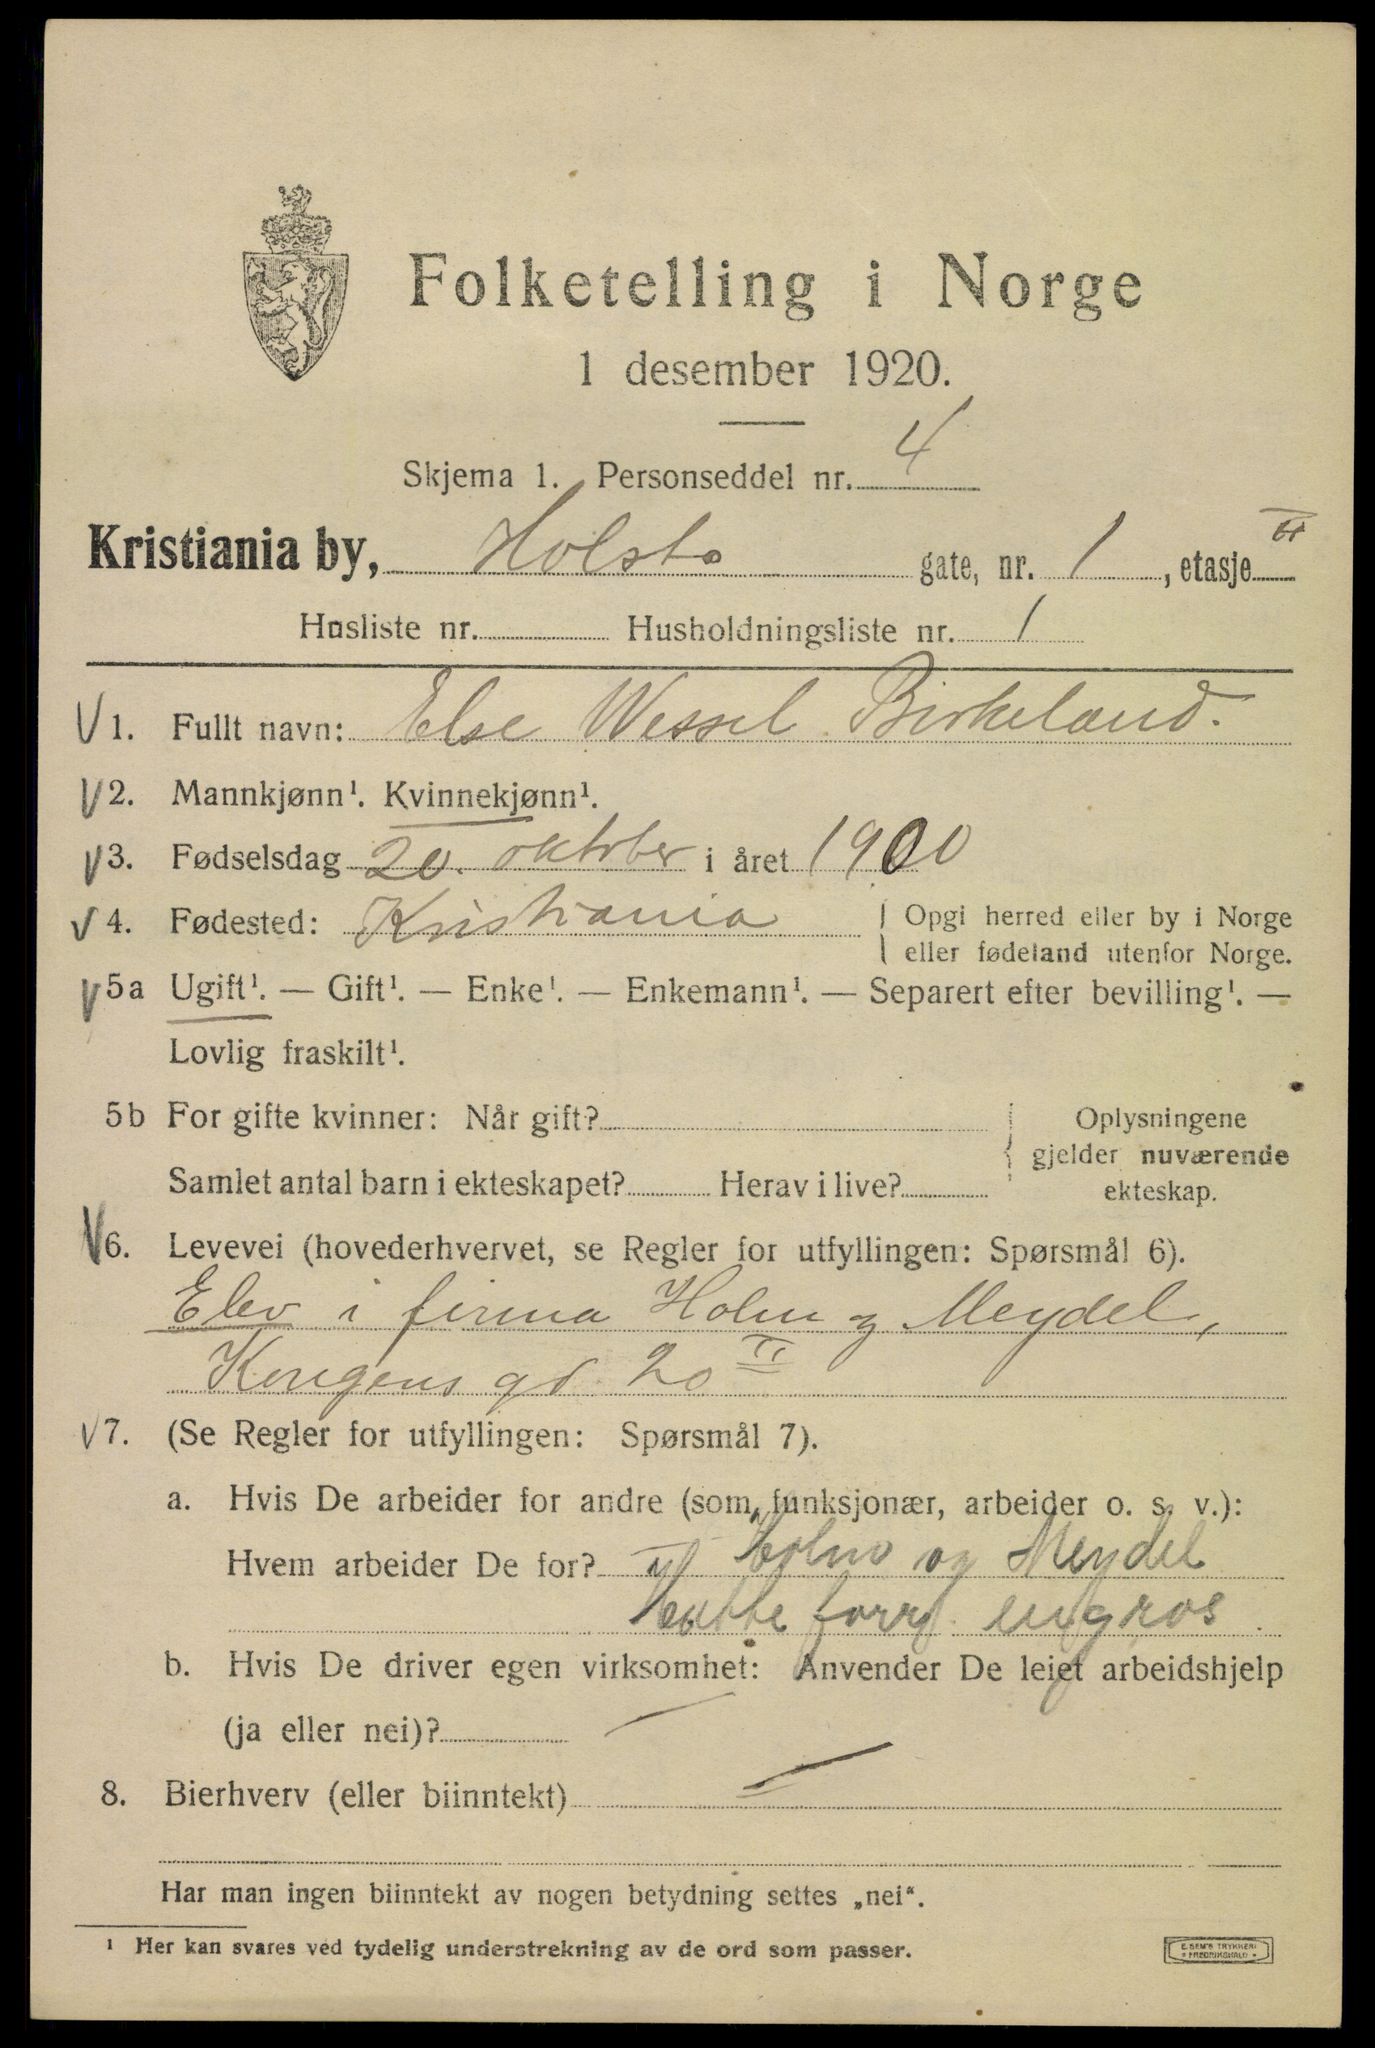 Folketelling i Norge
1 desember 1920.
Skjema 1. Personseddel nr. 4
Kristiania by, Holsts gate, nr. 1, etasje II
Husliste nr. Husholdningsliste nr. 1
1. Fullt navn: Else Wessel Birkeland.
2. Mannkjønn¹. Kvinnekjønn¹.
3. Fødselsdag 20. oktober i året 1900
4. Fødested: Kristiania
Opgi herred eller by i Norge
eller fødeland utenfor Norge.
5a Ugift¹. — Gift¹. — Enke¹. — Enkemann¹. — Separert efter bevilling¹. —
Lovlig fraskilt¹.
5b For gifte kvinner: Når gift?
Samlet antal barn i ekteskapet? Herav i live?
Oplysningene
gjelder nuværende
ekteskap.
6. Levevei (hovederhvervet, se Regler for utfyllingen: Spørsmål 6).
Elev i firma Holm og Meydel,
Kongens gd. 20 II
7. (Se Regler for utfyllingen: Spørsmål 7).
a. Hvis De arbeider for andre (som funksjonær, arbeider o. s. v.):
Hvem arbeider De for? Holm og Meydel
forr. engros
b. Hvis De driver egen virksomhet: Anvender De leiet arbeidshjelp
(ja eller nei)? —
8. Bierhverv (eller biinntekt) —
Har man ingen biinntekt av nogen betydning settes „nei“.
¹ Her kan svares ved tydelig understrekning av de ord som passer.
E. SEM'S TRYKKERI
FREDRIKSHALD